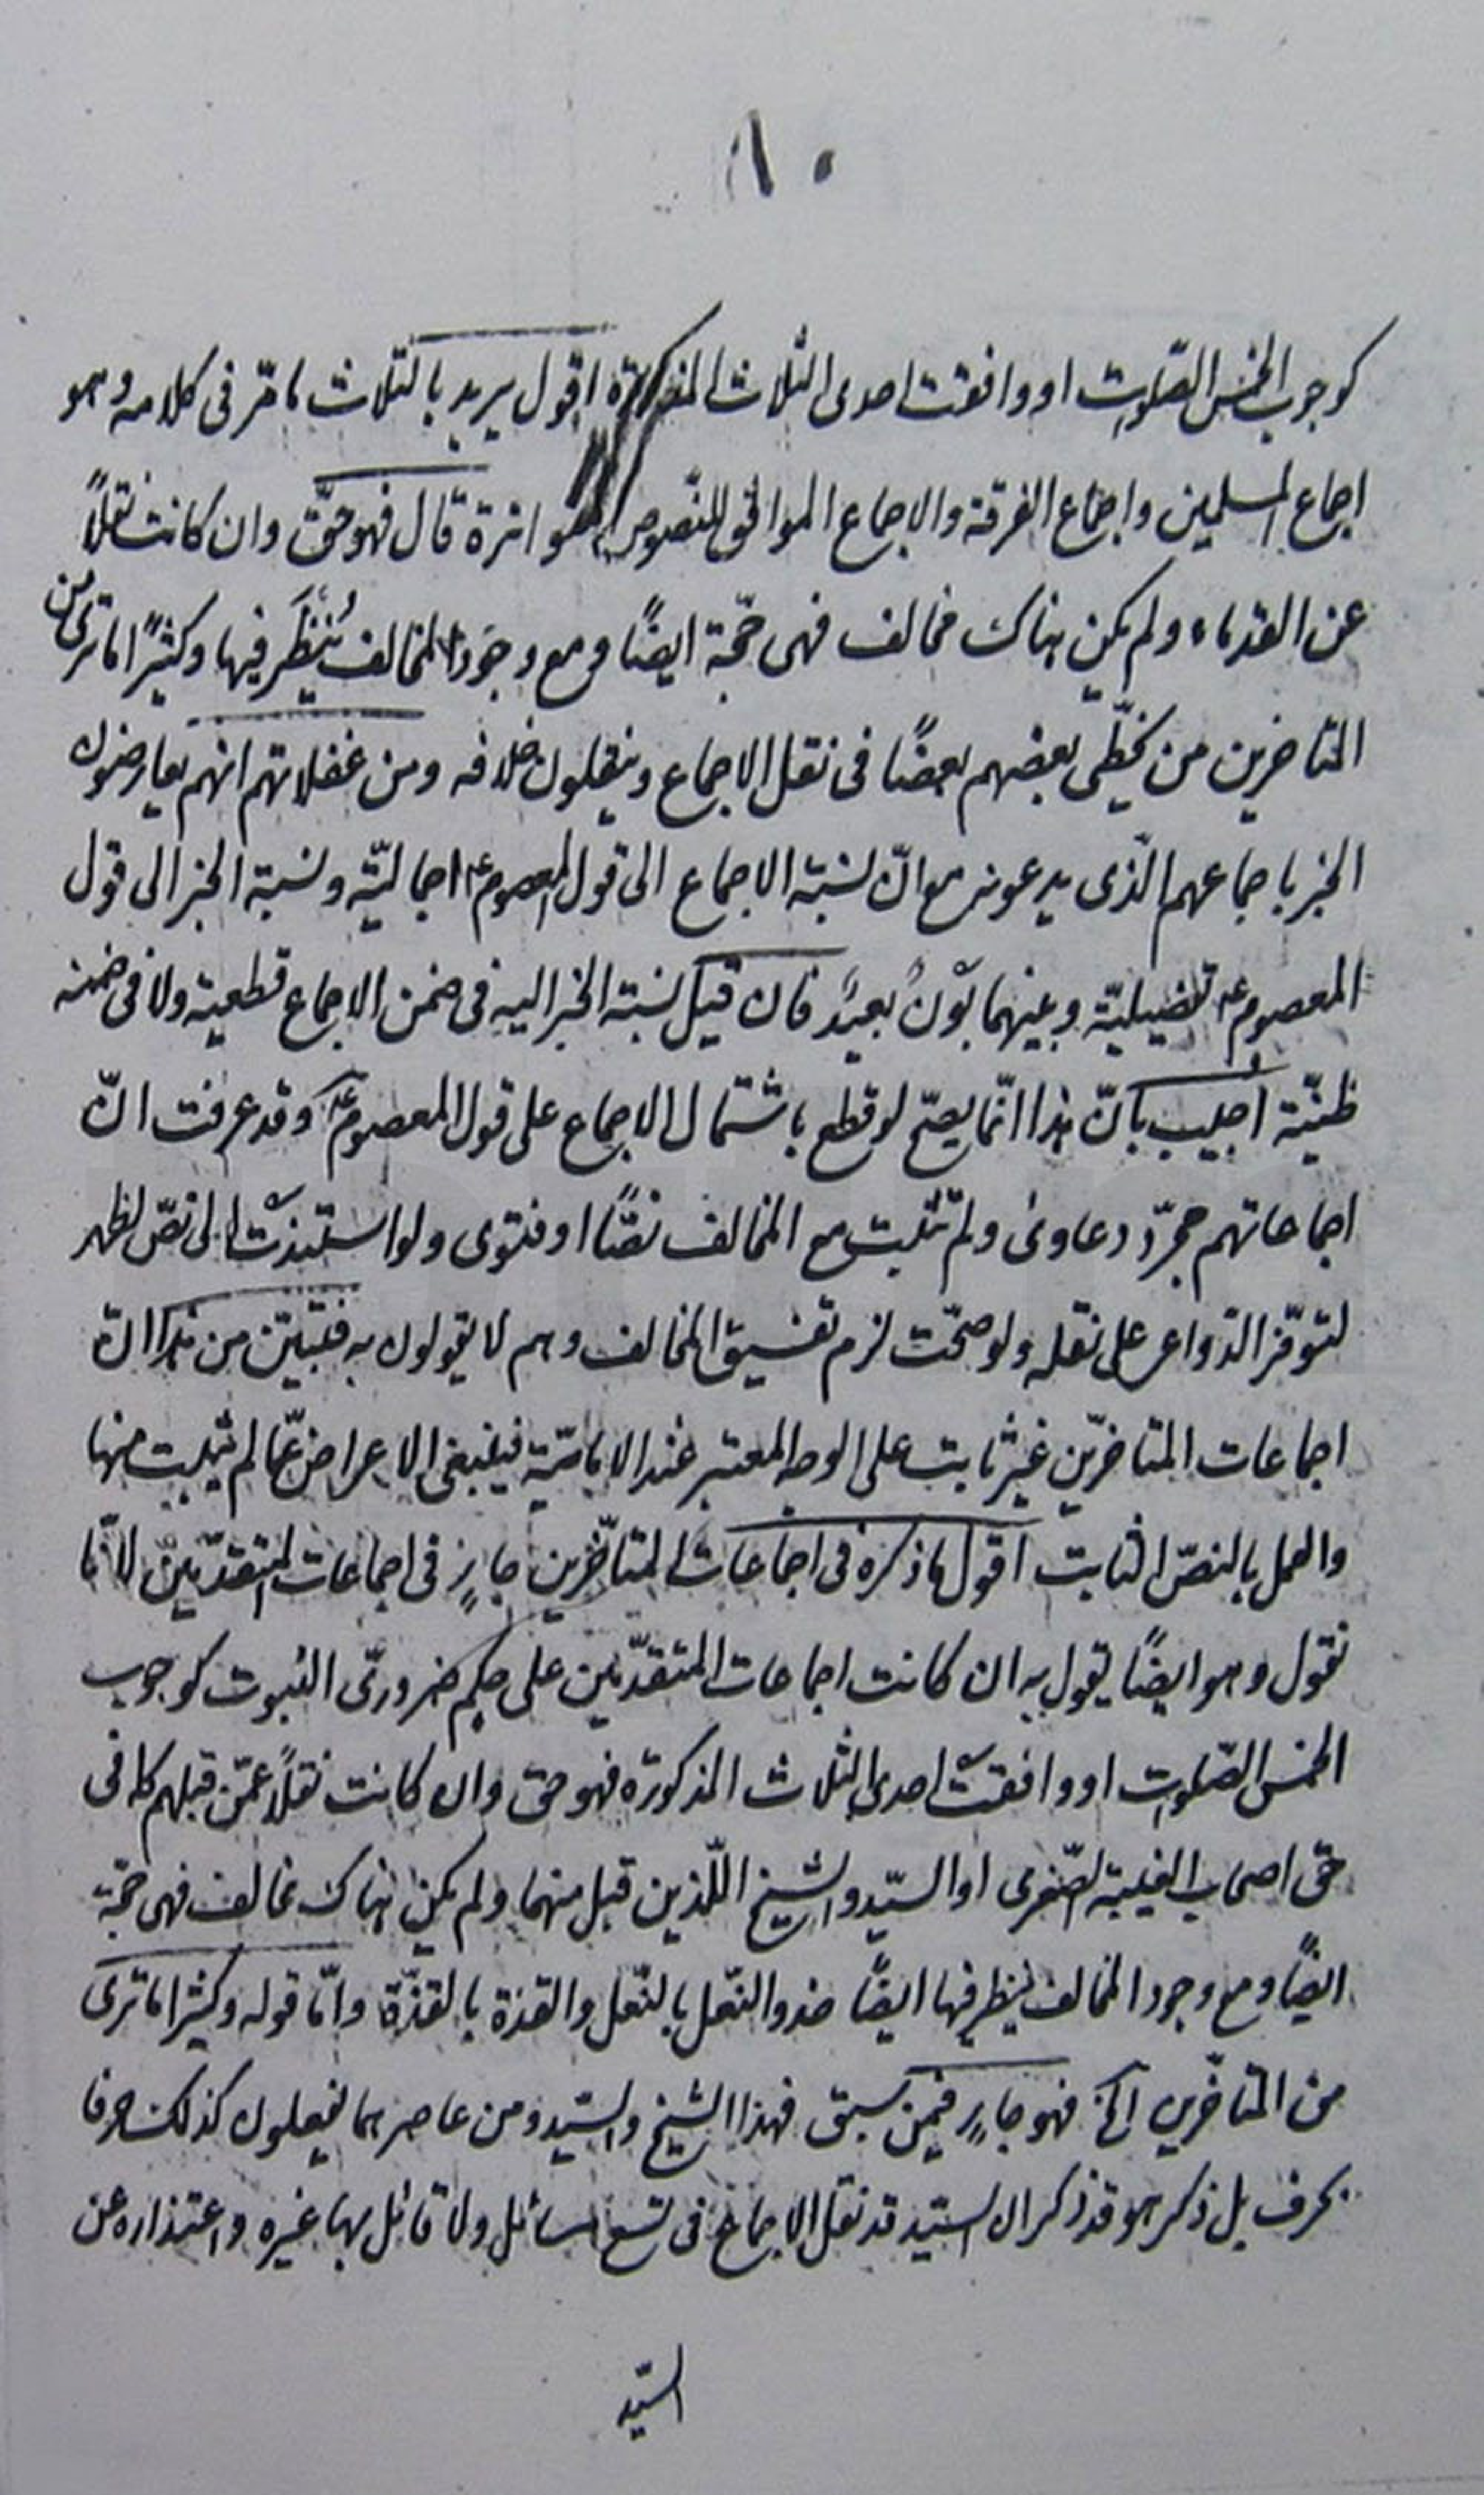 ١٠
كوجوب الخمس الصّلوت او وافقت احدى الثلاث المذكورة اقول يريد بالثلاث ما مّر فى كلامه وهو
اجماع المسلمين واجماع الفرقة والاجماع الموافق للنّصوص المتواترة قال فهو حقّ وان كانت نقلاً
عن القدماء ولم يكن هناك مخالف فهى حجّة ايضًا ومع وجود المخالف يُنظَر فيها وكثيرًا ما ترى من
المتاخرين من يخطّى بعضهم بعضًا فى نقل الاجماع وينقلون خلافه ومن غفلاتهم انهم يعارضون
الخبر باجماعهم الّذى يدعونه مع انّ نسبة الاجماع الى قول المعصوم ع اجماليّة ونسبة الخبر الى قول
المعصوم ع تفصيليّة وبينهما بَوْنٌ بعيدٌ فان قيل نسبة الخبر اليه فى ضمن الاجماع قطعية ولا فى ضمنه
ظنيّة اُجيب بانّ هذا انّما يصحّ لو قطع باشتمال الاجماع على قول المعصوم ع وقد عرفت انّ
اجماعاتهم مجرّد دعاوى ولم تثبت مع المخالف نصًّا او فتوى ولو استندت الى نصّ لظهر
لتوفّر الدّواعى على نقله ولو صحّت لزم تفسيق المخالف وهم لا يقولون به فتبيّن من هذا انّ
اجماعات المتاخرّين غير ثابت على الوجه المعتبر عند الاماميّة فينبغى الاعراض عمّا لم يثبت منها
والعمل بالنصّ الثابت اقول ما ذكره فى اجماعات المتاخّرين جارٍ فى اجماعات المتقدّمين لانّا
نقول وهو ايضًا يقول به ان كانت اجماعات المتقدّمين على حكم ضرورىّ الثبوت كوجوب
الخمس الصّلوت او وافقت احدى الثلاث المذكورة فهو حق وان كانت نقلاً عمّن قبلهم كما فى
حق اصحاب الغيبة الصّغرى او السيّد والشيخ اللّذين قبل منهما ولم يكن هناك مخالف فهى حجّة
ايضًا ومع وجود المخالف ينظر فيها ايضًا حذو النّعل بالنّعل والقذة بالقذّة وامّا قوله وكثيرا ما ترى
من المتاخّرين الخ فهو جارٍ فيمن سبق فهذا الشيخ والسّيد ومن عاصرهما يفعلون كذلك حرفا
بحرف بل ذكر هو قد ذكر ان السيّد قد نقل الاجماع فى تسع مسائل ولا قائل بها غيره واعتذاره عن
السيّد